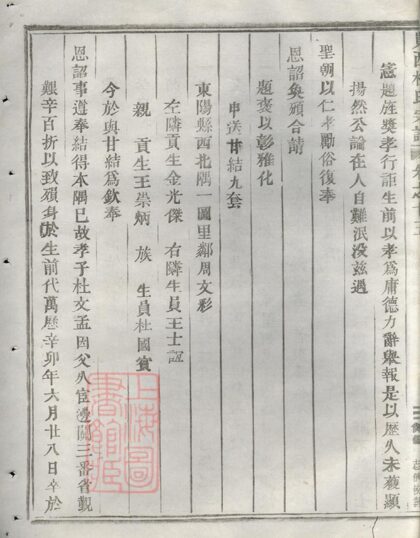 憲題旌獎孝行詎生前以孝爲庸德力辭舉報是以歷久未獲顯
揚然公論在人自難泯没兹遇
聖朝以仁孝勵俗復奉
恩詔奂頒合請
題褒以彰雅化
申送甘結九套
東陽縣西北隅一圖里鄰周文彩
左隣貢生金光傑 右隣生員王士𧨏
親 貢生王崇炳 族 生員杜國賓
今於與甘結爲欽奉
恩詔事遵奉結得本隅已故孝子杜文孟因父八官澧關三番省覲
艱辛百折以致殞身於生前代萬曆辛卯年六月廿八日卒於
上海圖書館藏